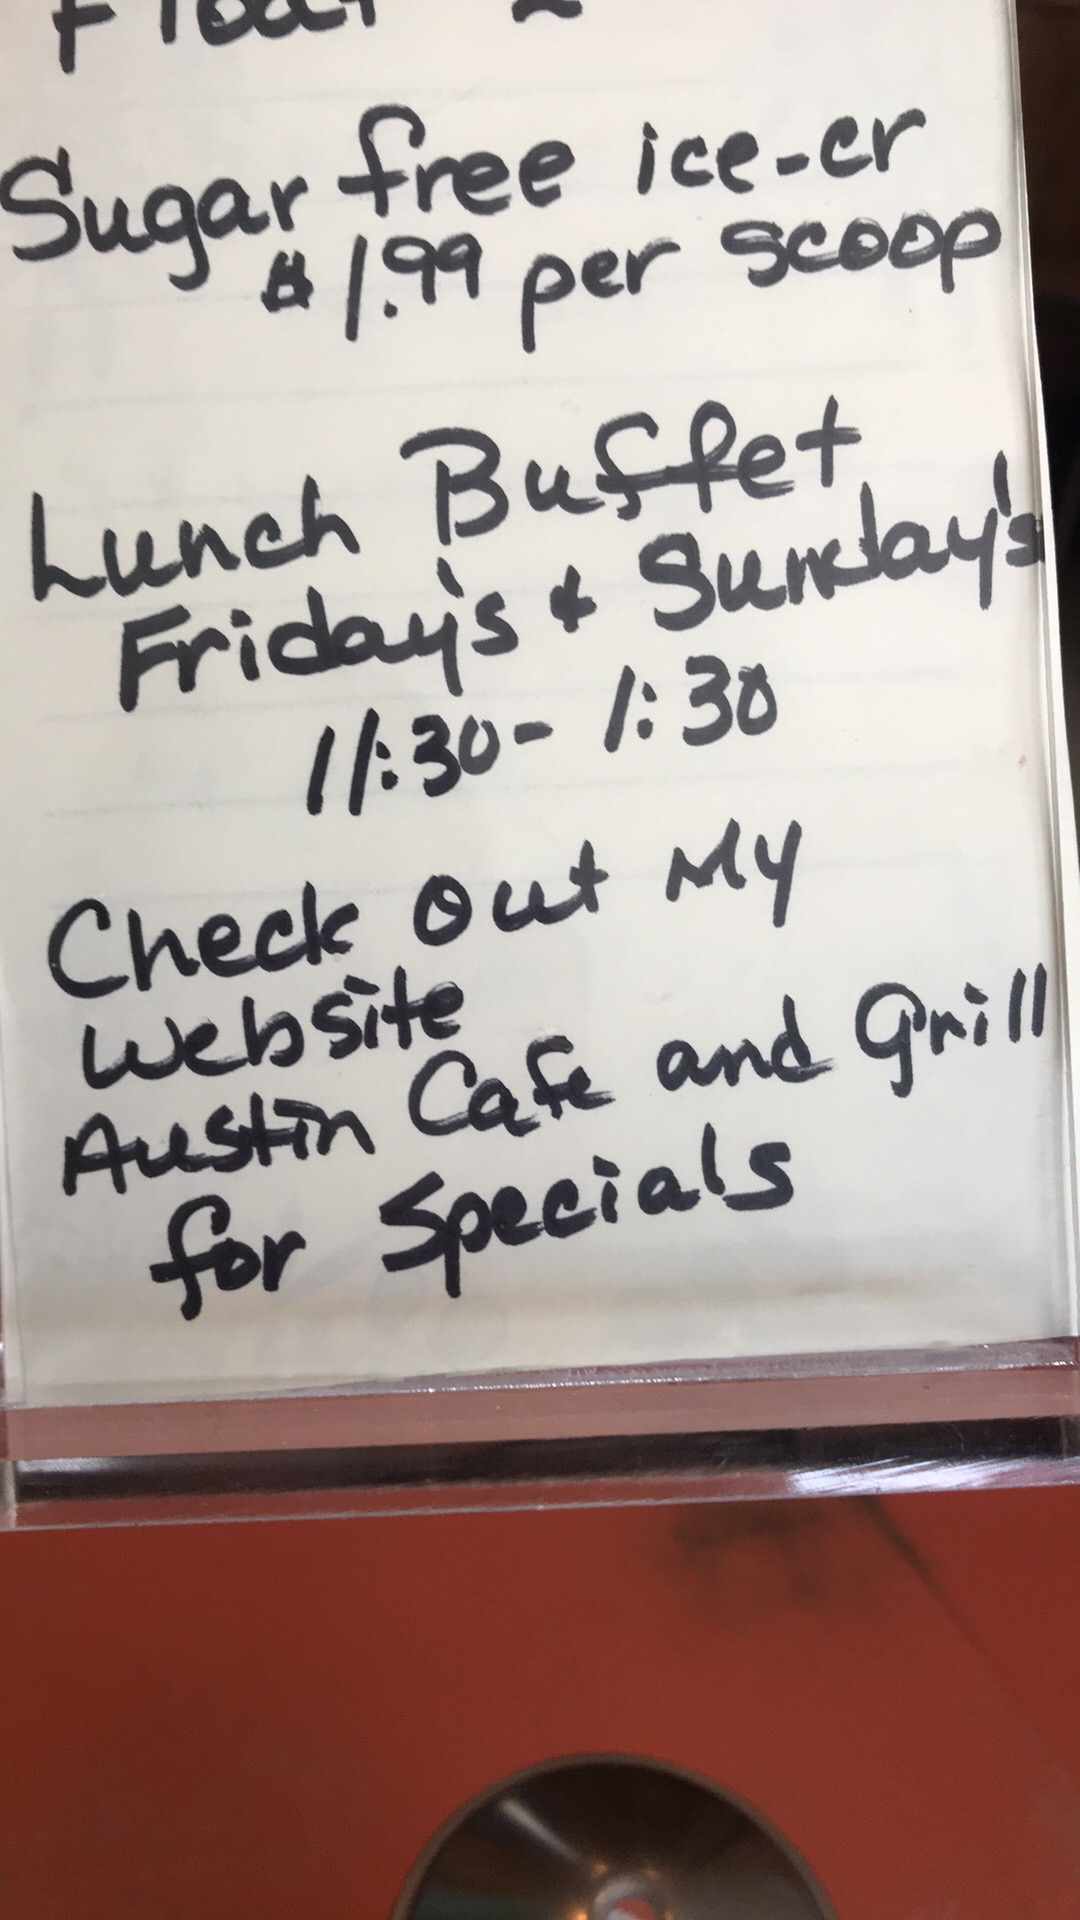 Float
Sugar free ice-cr
$1.99 per scoop
Lunch Buffet
Friday's & Sunday's
11:30-1:30
Check out My
website
Austin Cafe and Grill
for Specials